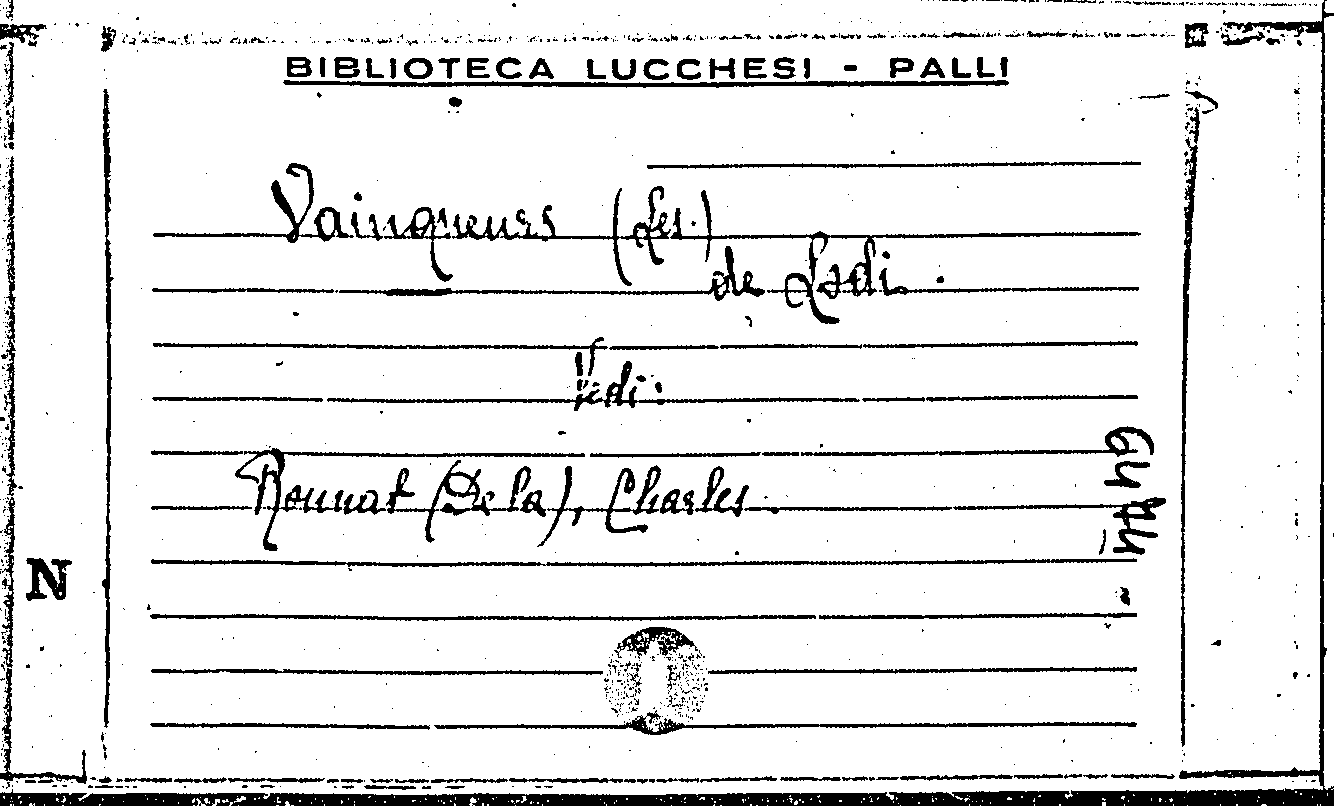 BIBLIOTECA LUCCHESI - PALLI
Vainqueurs (Les.)
de Lodi.
Vedi:
Rounat (De la), Charles.
N